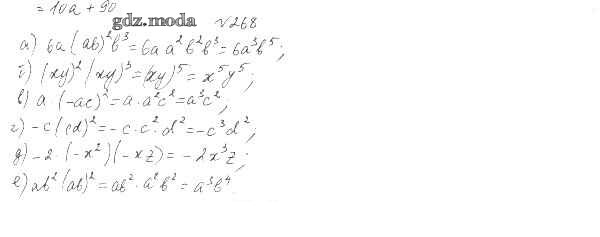 = 10a + 90
gdz.moda √268
а) 6a(ab)²b³=6a a²b²b³=6a³b⁵;
б) (xy)²(xy)³=(xy)⁵=x⁵y⁵;
в) a·(-ac)²=a·a²c²=a³c²,
г) -c(cd)²=-c·c²·d²=-c³d²;
д) -2·(-x²)(-xz)=-2x³z;
е) ab²(ab)²=ab²·a²b²=a³b⁴